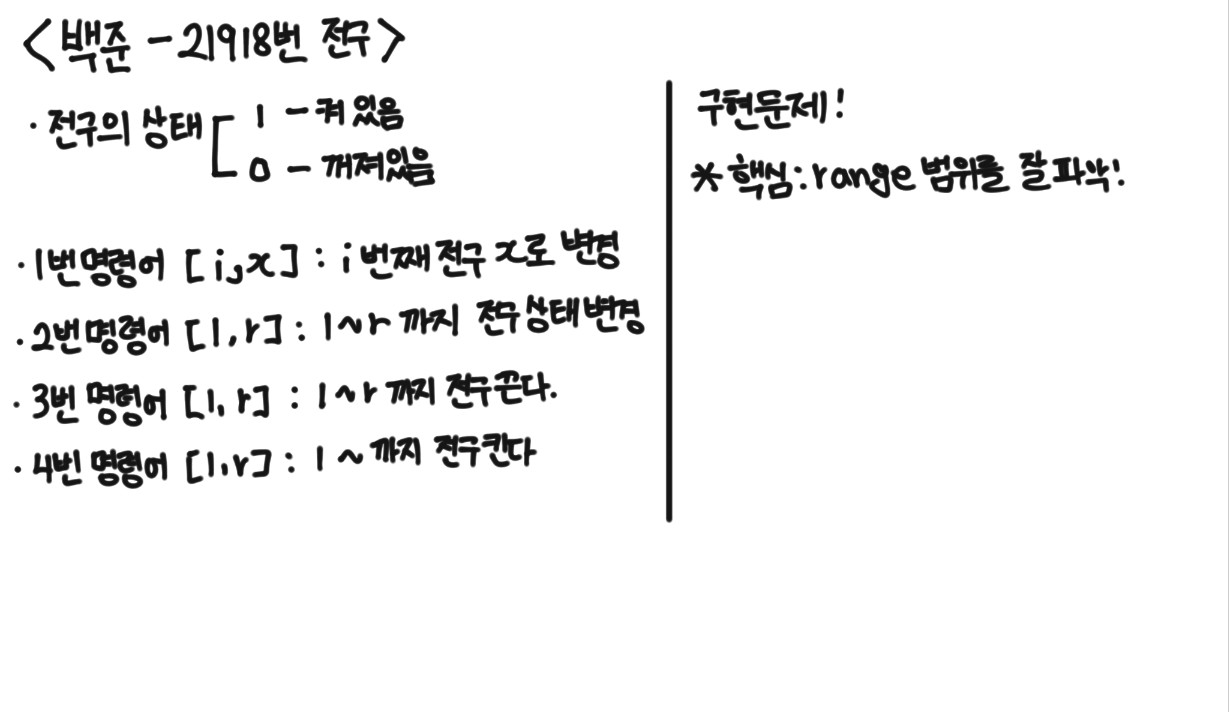 <백준 - 21918번 전구>
· 전구의 상태 1 - 켜 있음
0 - 꺼져있음
· 1번 명령어 [i,x] : i 번째 전구 x로 변경
· 2번 명령어 [l,r] : l~r 까지 전구 상태 변경
· 3번 명령어 [l,r] : l~r 까지 전구 끈다.
· 4번 명령어 [l,r] : l ~ 까지 전구 킨다
구현문제!
* 핵심 : range 범위를 잘 파악!